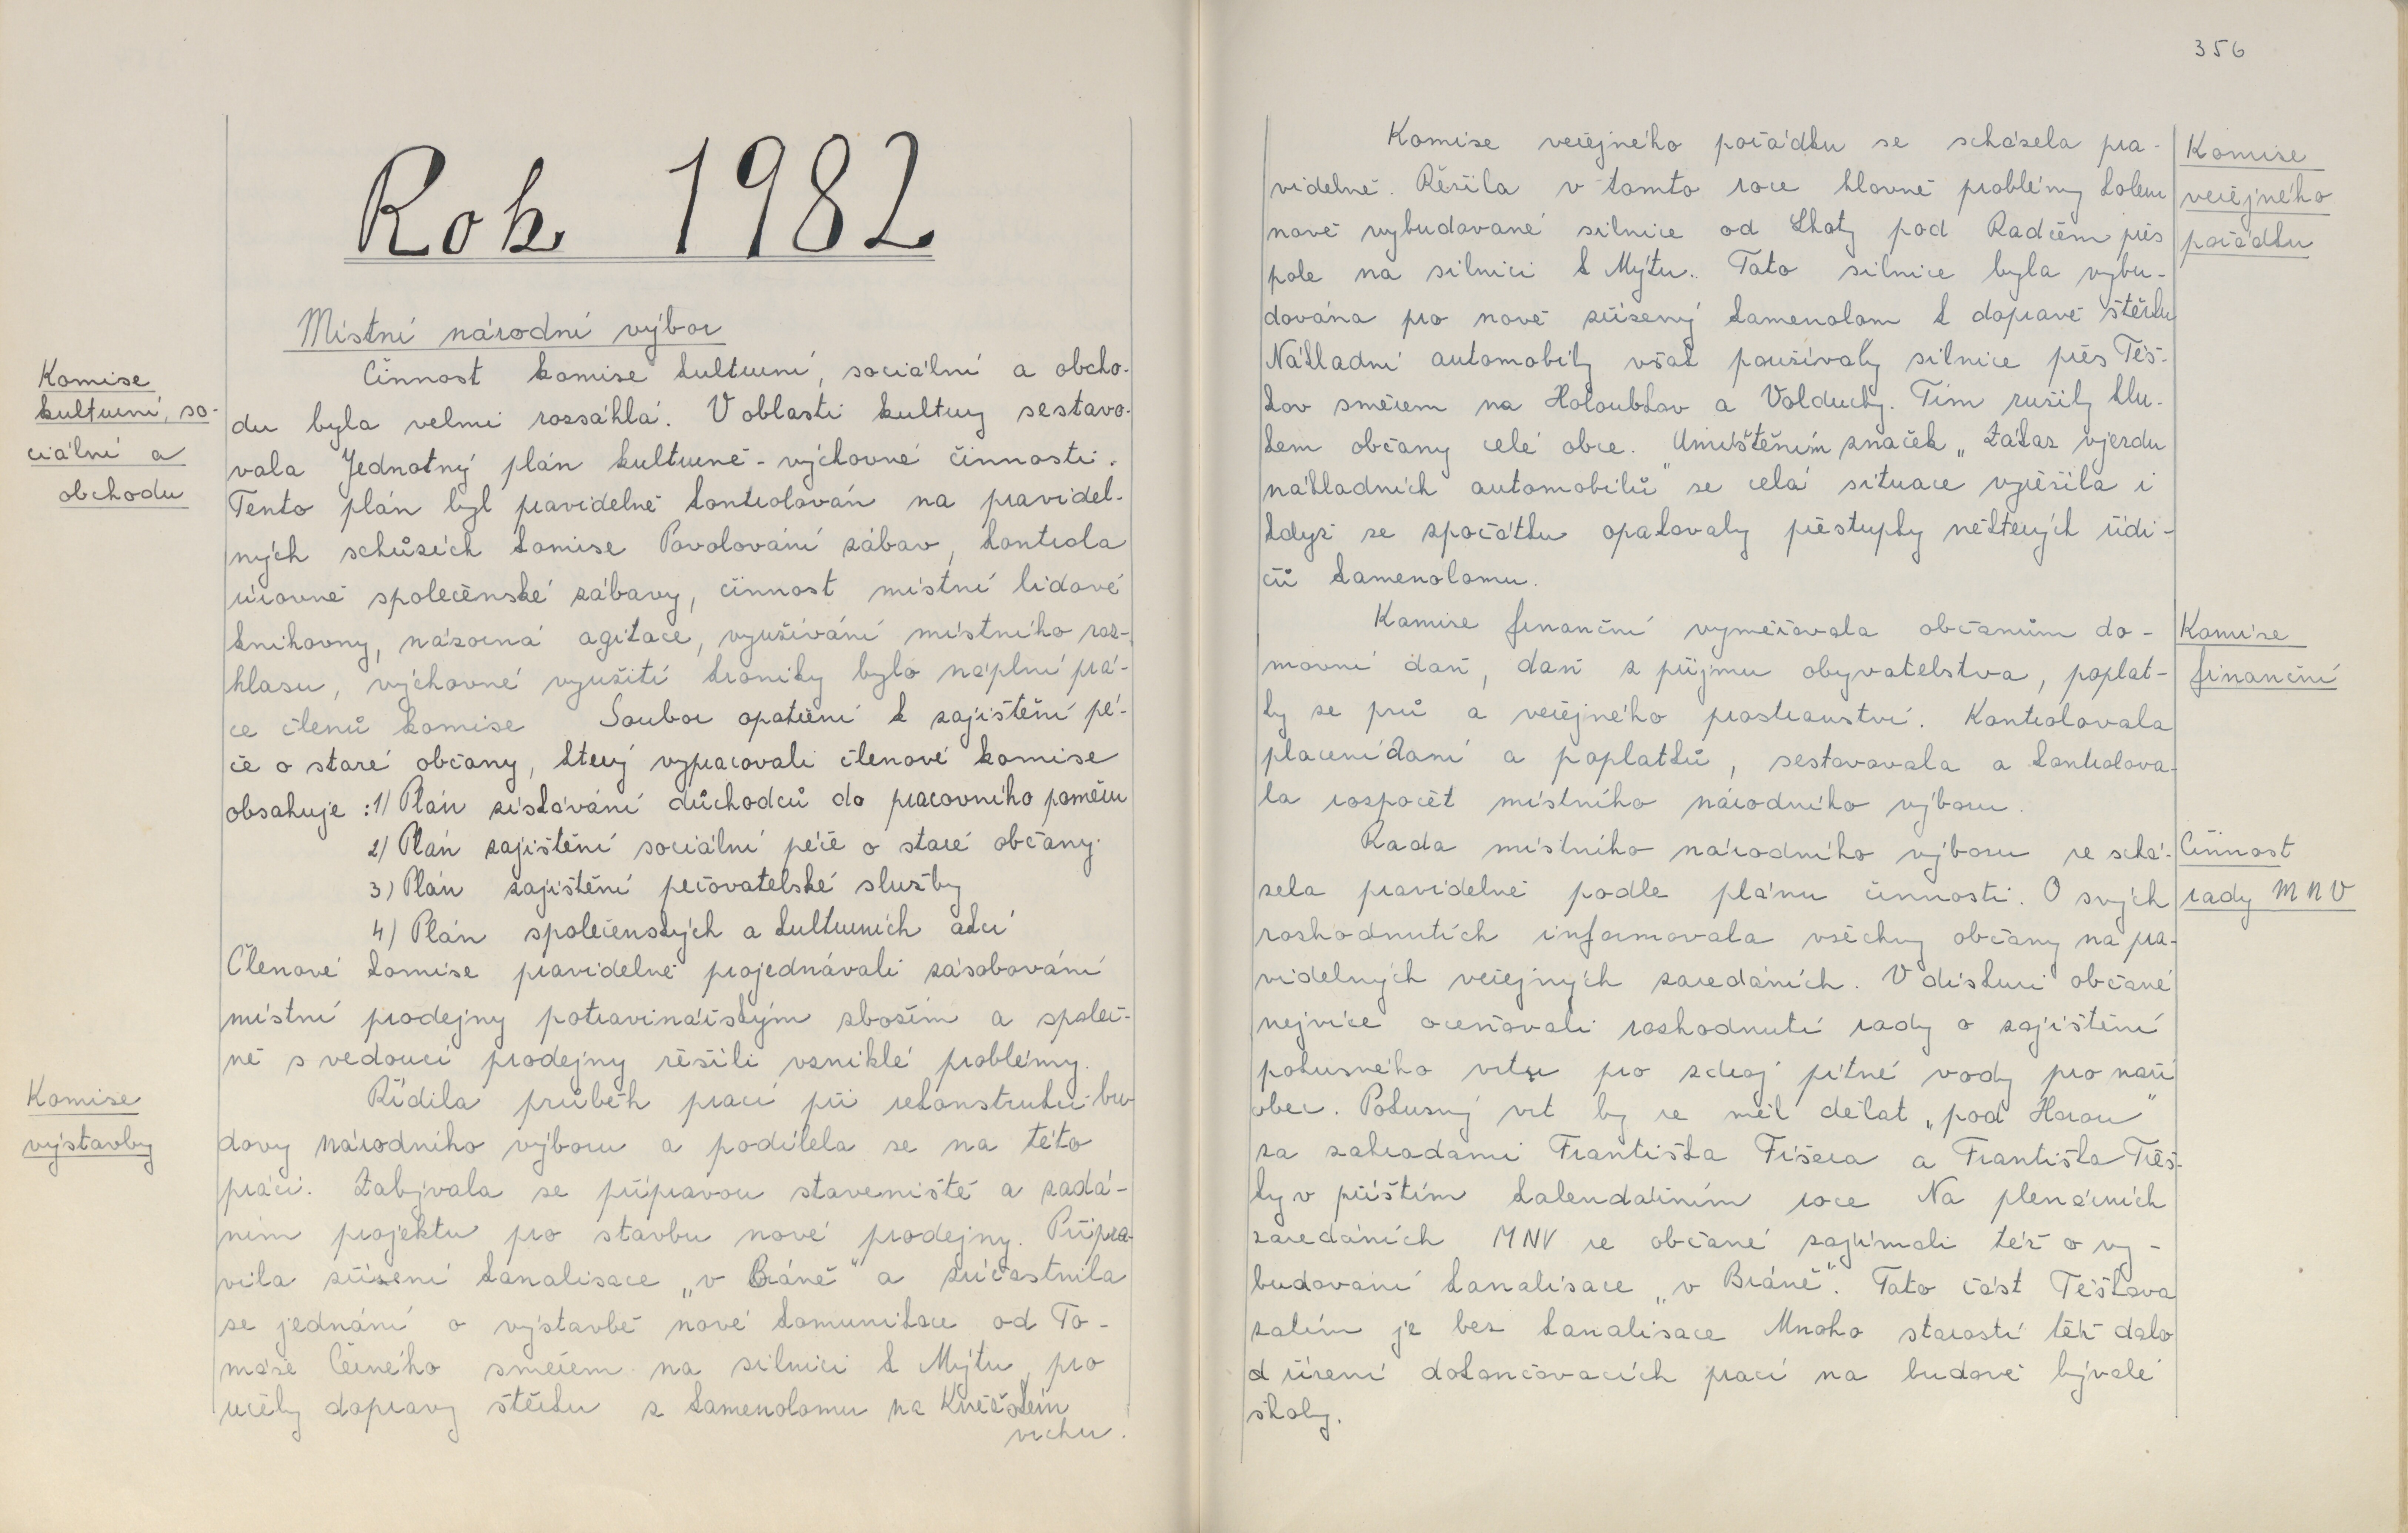 Rok 1982
Místní národní výbor
Komise
kulturní, so-
ciální a
obchodu
Činnost komise kulturní, sociální a obcho-
du byla velmi rozsáhlá. V oblasti kultury sestavo-
vala Jednotný plán kulturně-výchovné činnosti.
Tento plán byl pravidelně kontrolován na pravidel-
ných schůzích komise Povolování zábav, kontrola
úrovně společenské zábavy, činnost místní lidové
knihovny, názorná agitace, využívání místního roz-
hlasu, výchovné využití kroniky bylo náplní prá-
ce členů komise Soubor opatření k zajištění pé-
če o staré občany, který vypracovali členové komise
obsahuje :1) Plán získávání důchodců do pracovního poměru
2) Plán zajištění sociální péče o staré občany.
3) Plán zajištění pečovatelské služby
4) Plán společenských a kulturních akcí
Členové komise pravidelně projednávali zásobování
místní prodejny potravinářským zbožím a společ-
ně s vedoucí prodejny řešili vzniklé problémy.
Komise
výstavby
Řídila průběh prací při rekonstrukci bu-
dovy národního výboru a podílela se na této
práci. Zabývala se přípravou staveniště a zadá-
ním projektu pro stavbu nové prodejny. Připra-
vila zřízení kanalisace „v Bráně" a zúčastnila
se jednání o výstavbě nové komunikace od To-
máše Černého směrem na silnici k Mýtu, pro
účely dopravy štěrku z kamenolomu na Kněžském
vrchu.
356
Komise veřejného pořádku se scházela pra-
videlně. Řešila v tomto roce hlavně problémy kolem
nově vybudované silnice od Lhoty pod Radčem přes
pole na silnici k Mýtu. Tato silnice byla vybu-
dována pro nově zřízený kamenolom k dopravě štěrku
Nákladní automobily však používaly silnice přes Těš-
kov směrem na Holoubkov a Volduchy. Tím rušily hlu-
kem občany celé obce. Umístěním značek „Zákaz vjezdu
nákladních automobilů" se celá situace vyřešila i
když se zpočátku opakovaly přestupky některých řidi-
čů kamenolomu.
Komise
veřejného
pořádku
Komise finanční vyměřovala občanům do-
movní daň, daň z příjmu obyvatelstva, poplat-
ky ze psů a veřejného prostranství. Kontrolovala
placení daní a poplatků, sestavovala a kontrolova-
la rozpočet místního národního výboru.
Komise
finanční
Rada místního národního výboru se schá-
zela pravidelně podle plánu činnosti. O svých
rozhodnutích informovala všechny občany na pra-
videlných veřejných zasedáních. V diskusi občané
nejvíce oceňovali rozhodnutí rady o zajištění
pokusného vrtu pro zdroj pitné vody pro naši
obec. Pokusný vrt by se měl dělat „pod Horou"
za zahradami Františka Fišera a Františka Treš-
ky v příštím kalendářním roce Na plenárních
zasedáních MNV se občané zajímali též o vy-
budování kanalisace „v Bráně". Tato část Těškova
zatím je bez kanalisace Mnoho starostí též dalo
d řízení dokončovacích prací na budově bývalé
školy.
Činnost
rady MNV